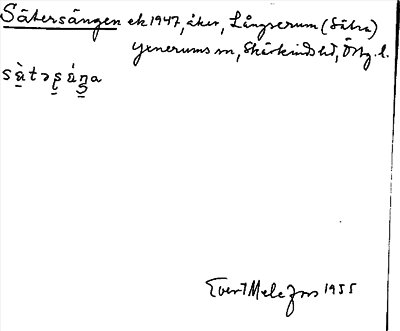 Sätersängen ek 1947, åker, Långserum (Sätra)
Yxnerums sn, Skärkinds hd, Östg. l.
sä̀təʂáŋa
Evert Melefors 1955